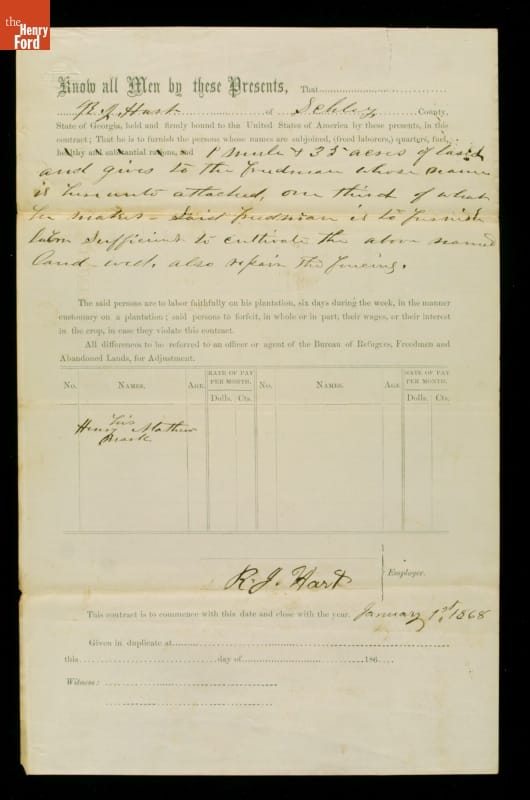 the
Henry
Ford
Know all Men by these Presents, That
R. J. Hart of Schley County,
State of Georgia, held and firmly bound to the United States of America by these presents, in this
contract; That he is to furnish the persons whose names are subjoined, (freed laborers,) quarters, fuel,
healthy and substantial rations, and 1 mule & 35 acres of land
and gives to the freedman whose name
is hereunto attached, one third of what
he makes – Said freedman is to furnish
labor sufficient to cultivate the above named
land well, also repair the fencing.
The said persons are to labor faithfully on his plantation, six days during the week, in the manner
customary on a plantation; said persons to forfeit, in whole or in part, their wages, or their interest
in the crop, in case they violate this contract.
All differences to be referred to an officer or agent of the Bureau of Refugees, Freedmen and
Abandoned Lands, for Adjustment.
No. Names. Age. RATE OF PAY PER MONTH. No. Names. Age. RATE OF PAY PER MONTH.
Dolls. Cts. Dolls. Cts.
his
Henry Mathew
mark
R. J. Hart Employer.
This contract is to commence with this date and close with the year. January 1st 1868
Given in duplicate at
this day of 186
Witness: